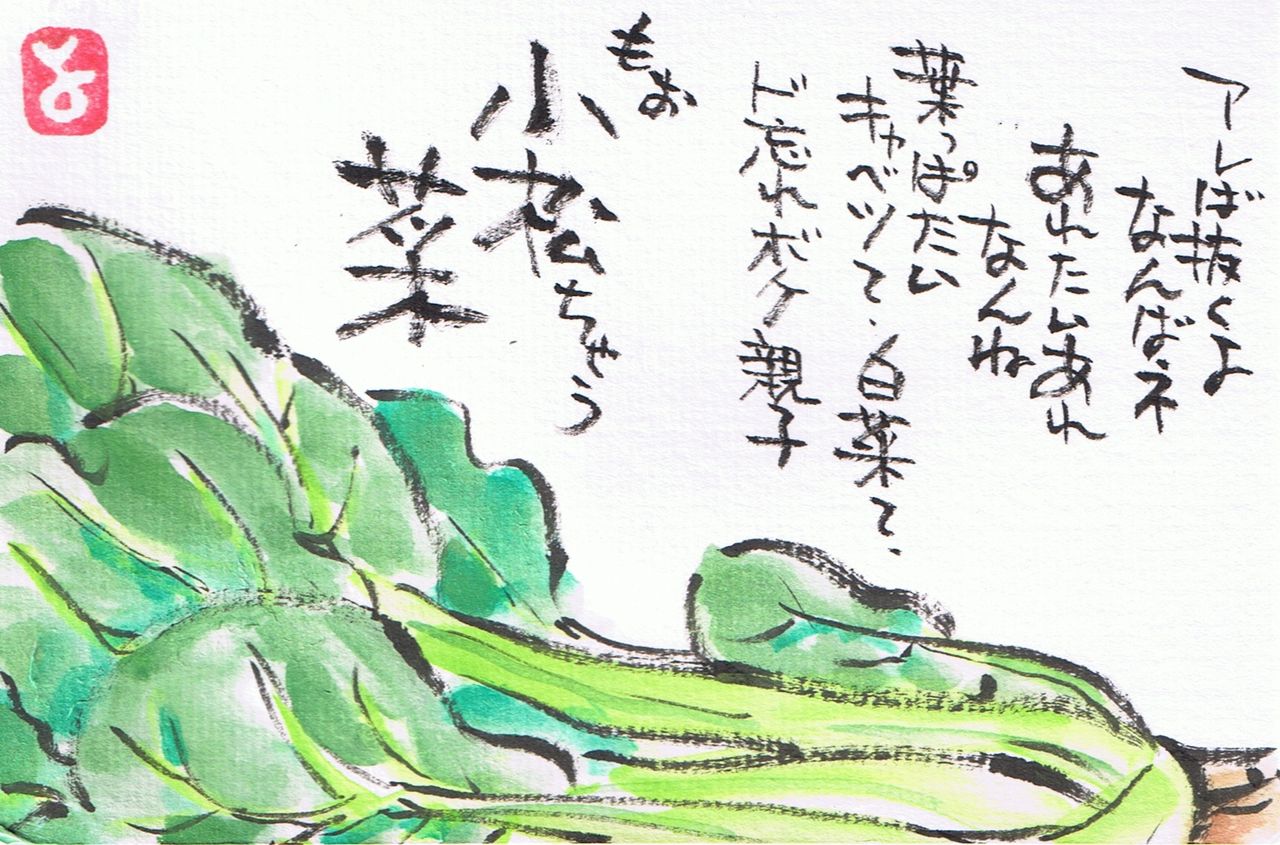 アレば抜くよ
なんばネ
あれたいあれ
なんね
葉っぱたい
キャベツて、白菜て、
ド忘れボケ親子
もお
小松ちゃう
菜